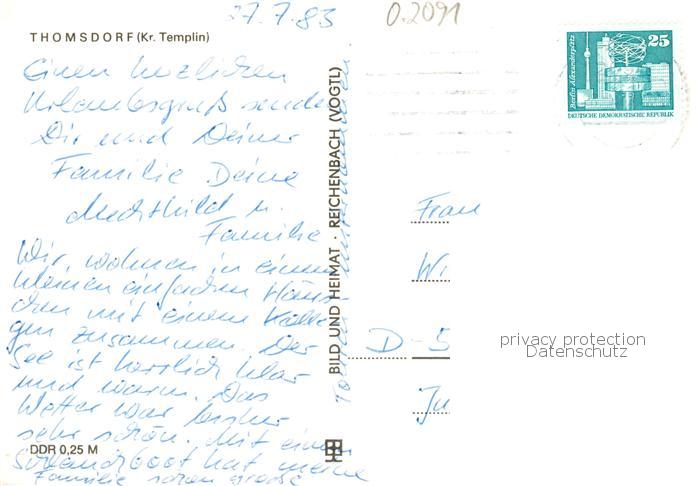 27.7.83
0.2091
THOMSDORF (Kr. Templin)
Einen herzlichen
Urlaubsgruß senden
Dir und Deiner
Familie Deine
Mechthild u.
Familie
Wir wohnen in einem
kleinen einfachen Häus-
chen mit einem Kolle-
gen zusammen. Der
See ist herrlich klar
und warm. Das
Wetter war bisher
sehr schön. Mit einem
hat meine
Familie schon große
DDR 0,25 M
BILD UND HEIMAT · REICHENBACH (VOGTL)
25
Berlin, Alexanderplatz
DEUTSCHE DEMOKRATISCHE REPUBLIK
Frau
Wi
D-5
Ju
privacy protection
Datenschutz